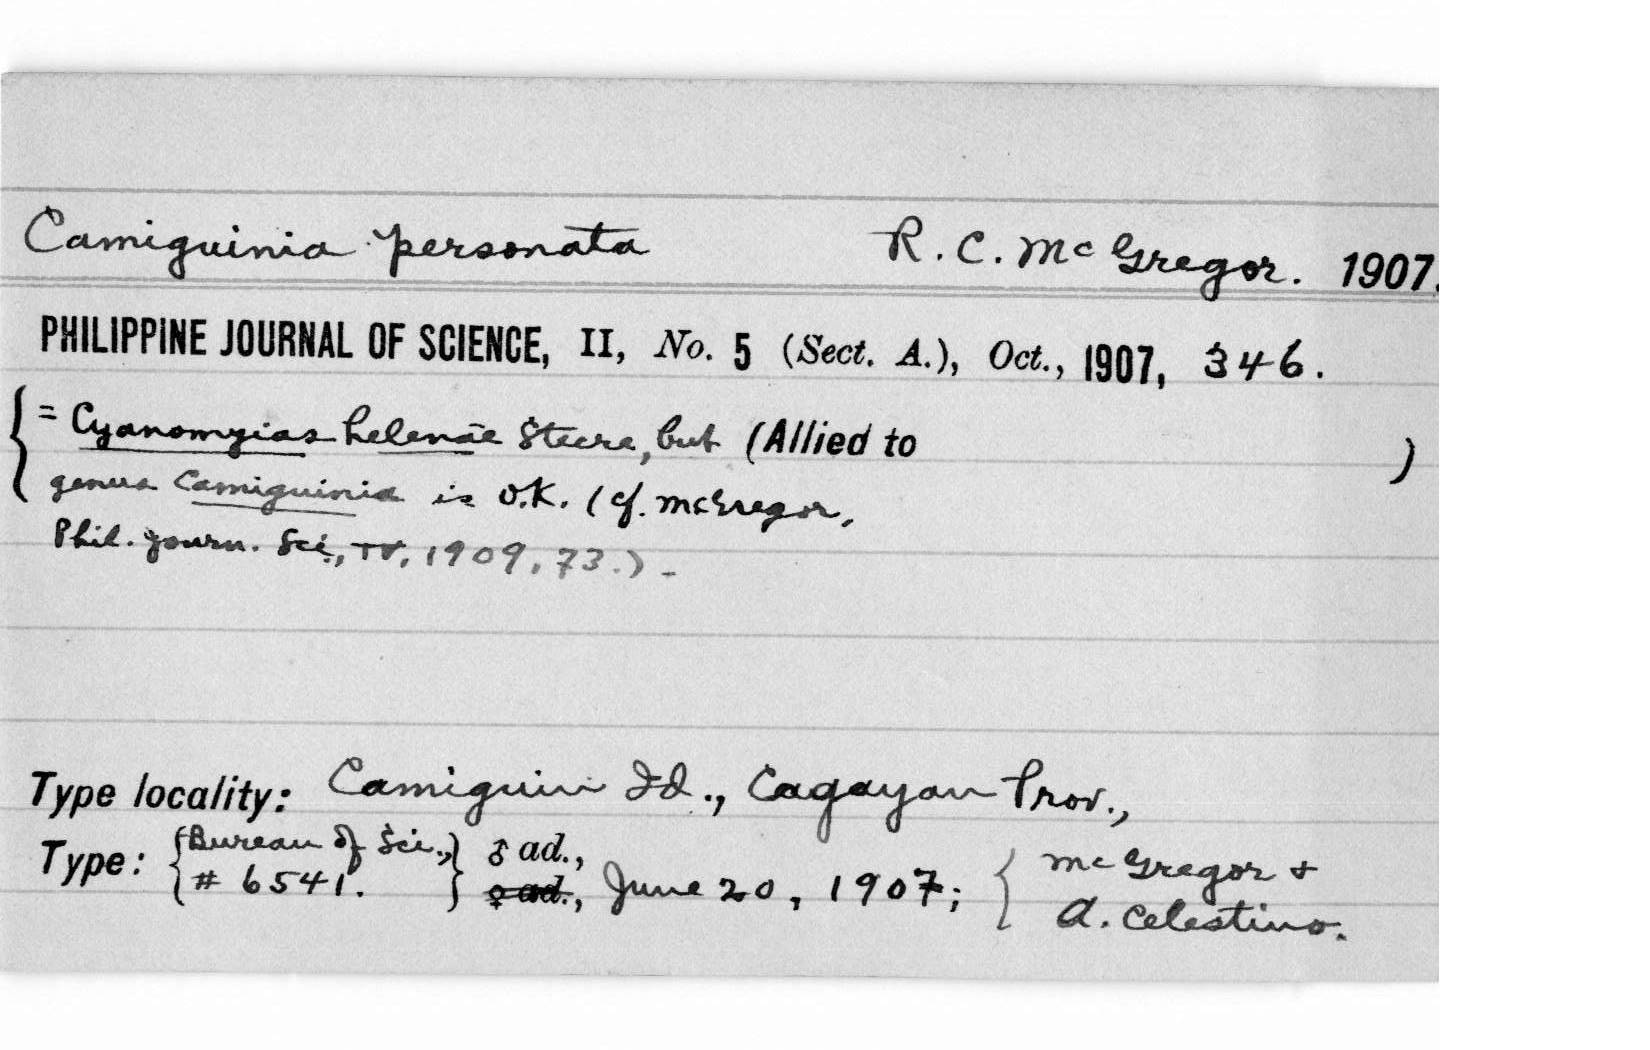 Camiguinia personata R. C. McGregor. 1907.
PHILIPPINE JOURNAL OF SCIENCE, II, No. 5 (Sect. A.), Oct., 1907, 346.
{= Cyanomyias helenae Steere, but (Allied to )
genus Camiguinia is O.K. (cf. McGregor,
Phil. Journ. Sci., IV, 1909, 73.) -
Type locality: Camiguin Id., Cagayan Prov.,
Type: {Bureau of Sci., } ♂ ad., { McGregor +
# 6541. ♀ ad., June 20, 1907; A. Celestino.